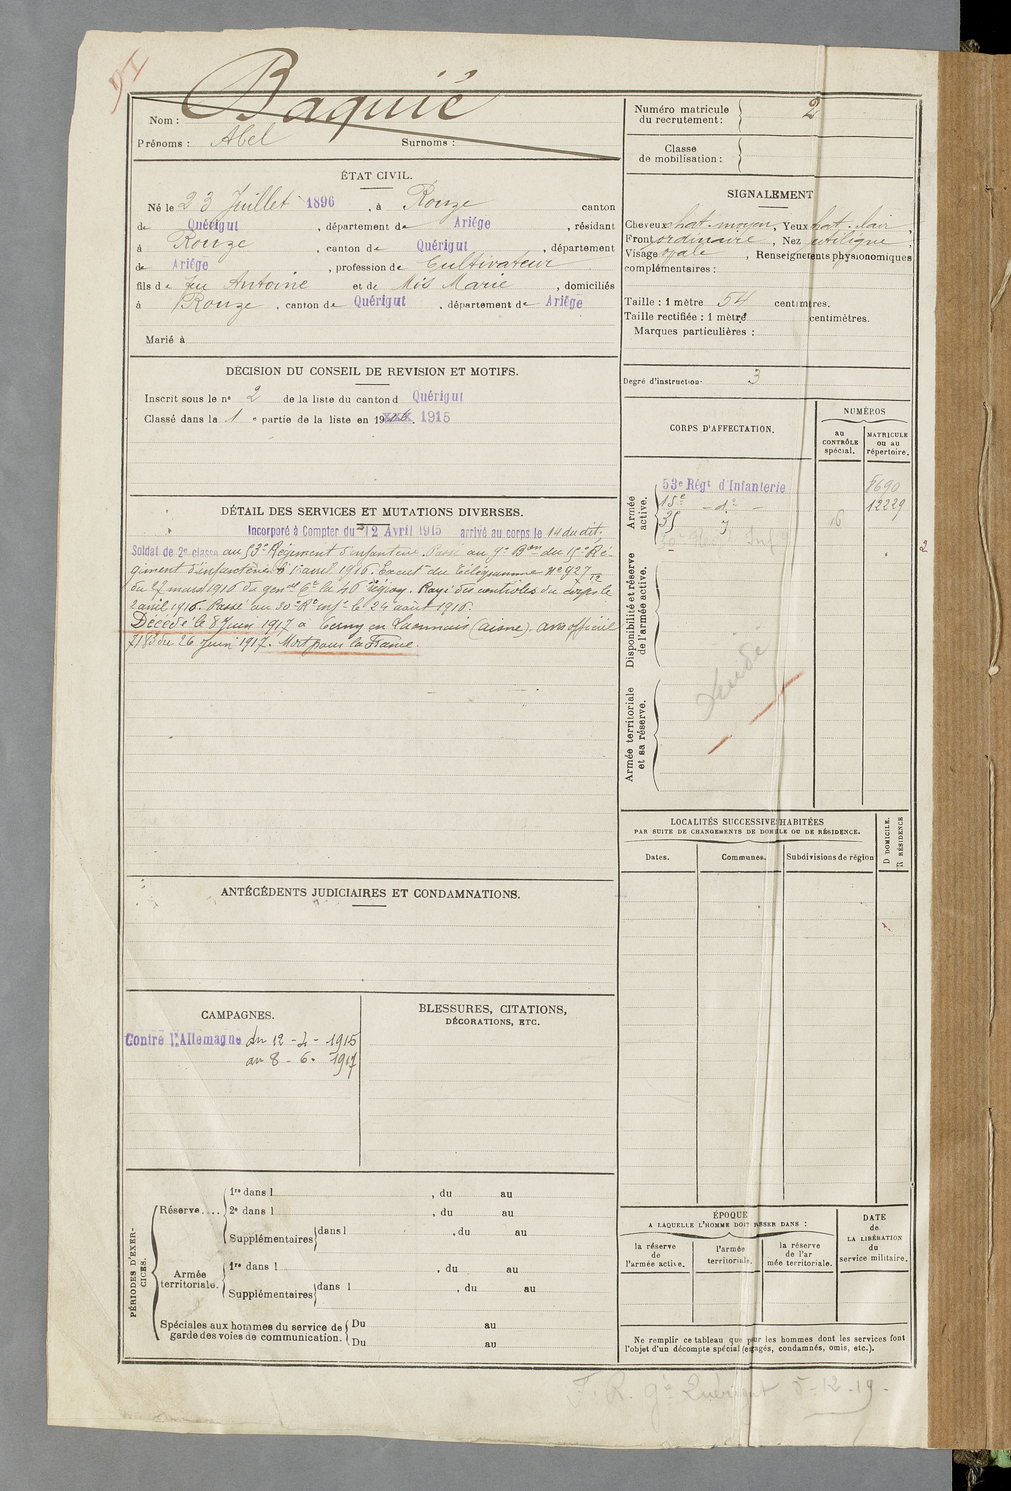 Nom : Baquié
Prénoms : Abel Surnoms :
ÉTAT CIVIL.
Né le 23 Juillet 1896, à Rouze canton
de Quérigut, département de Ariége, résidant
à Rouze, canton de Quérigut, département
de Ariége, profession de Cultivateur
fils de feu Antoine et de Mis Marie, domiciliés
à Rouze, canton de Quérigut, département de Ariége
Marié à
DÉCISION DU CONSEIL DE REVISION ET MOTIFS.
Inscrit sous le nº 2 de la liste du canton d Quérigut
Classé dans la 1 e partie de la liste en 19 1915
DÉTAIL DES SERVICES ET MUTATIONS DIVERSES.
Incorporé à Compter du 12 Avril 1915 arrivé au corps le 14 du dit.
Soldat de 2e classe au 53e Régiment d'infanterie. Passé au 9e Bon du 15e Ré-
giment d'infanterie le 1er avril 1916. Execut. du télégramme Nº 927
du 27 mars 1916 du Rayé des contrôles du corps le
2 avril 1916. Passé au 30e R. inf. le 24 août 1916.
Décédé le 8 Juin 1917 à Cerny en Laonnais (Aisne). avis officiel
du 26 Juin 1917. Mort pour la France.
ANTÉCÉDENTS JUDICIAIRES ET CONDAMNATIONS.
CAMPAGNES.
Contre l'Allemagne du 12 - 4 - 1915
au 8 - 6 - 1917
BLESSURES, CITATIONS,
DÉCORATIONS, ETC.
PÉRIODES D'EXER-
CICES.
Réserve....
1re dans l , du au
2e dans l , du au
Supplémentaires dans l , du au
Armée
territoriale.
1re dans l , du au
Supplémentaires dans l , du au
Spéciales aux hommes du service de
garde des voies de communication.
Du au
Du au
Numéro matricule
du recrutement : 2
Classe
de mobilisation :
SIGNALEMENT
Cheveux chat. moyen, Yeux chat. clair,
Front ordinaire, Nez rectiligne;
Visage ovale, Renseignements physionomiques
complémentaires :
Taille : 1 mètre 54 centimètres.
Taille rectifiée : 1 mètre centimètres.
Marques particulières :
Degré d'instruction. 3
CORPS D'AFFECTATION.
NUMÉROS
au
CONTRÔLE
spécial.
MATRICULE
ou au
répertoire.
Armée
active.
53e Régt d'Infanterie 8690
15e - do - 12229
16
Disponibilité et réserve
de l'armée active.
Armée territoriale
et sa réserve.
LOCALITÉS SUCCESSIVES HABITÉES
PAR SUITE DE CHANGEMENTS DE DOMICILE OU DE RÉSIDENCE.
Dates.
Communes.
Subdivisions de région
D DOMICILE.
R RÉSIDENCE
ÉPOQUE
A LAQUELLE L'HOMME DOIT PASSER DANS :
la réserve
de
l'armée active.
l'armée
territoriale.
la réserve
de l'ar
mée territoriale.
DATE
de
LA LIBÉRATION
du
service militaire.
Ne remplir ce tableau que pour les hommes dont les services font
l'objet d'un décompte spécial (engagés, condamnés, omis, etc.).
F. R. Quérigut 5-12-19.